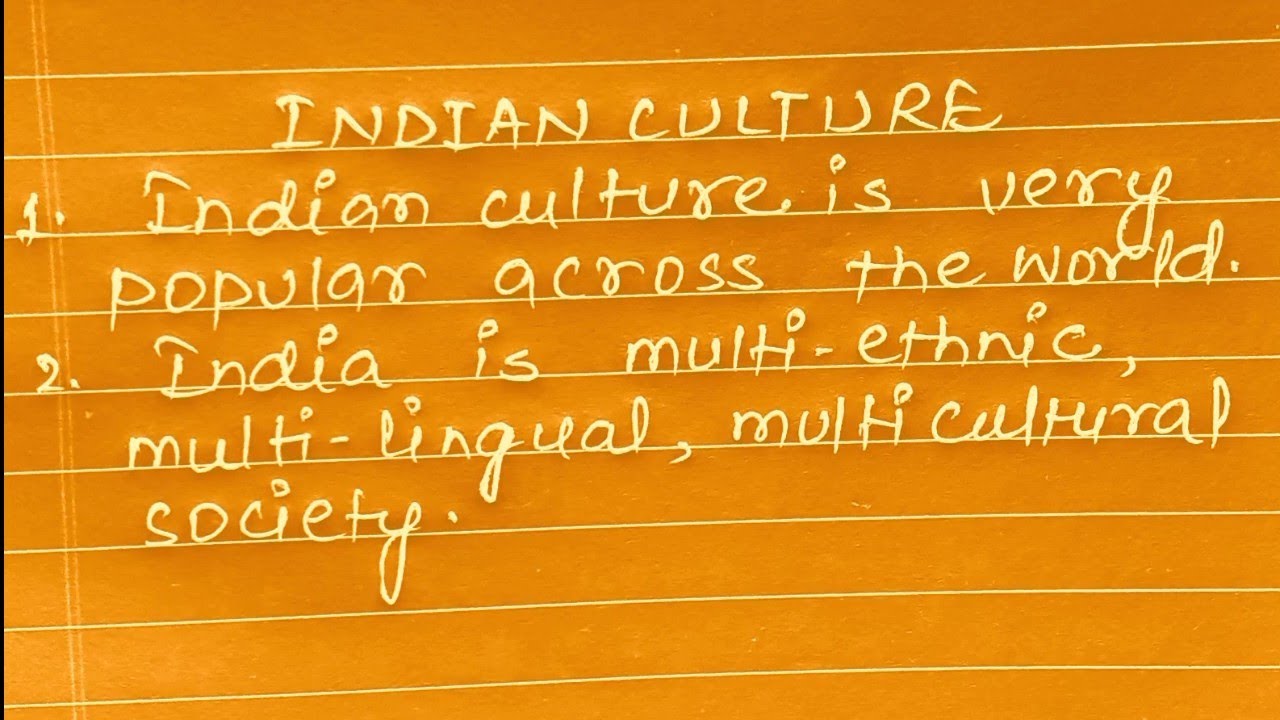 INDIAN CULTURE
1. Indian culture is very
popular across the world.
2. India is multi-ethnic,
multi-lingual, multi cultural
society.